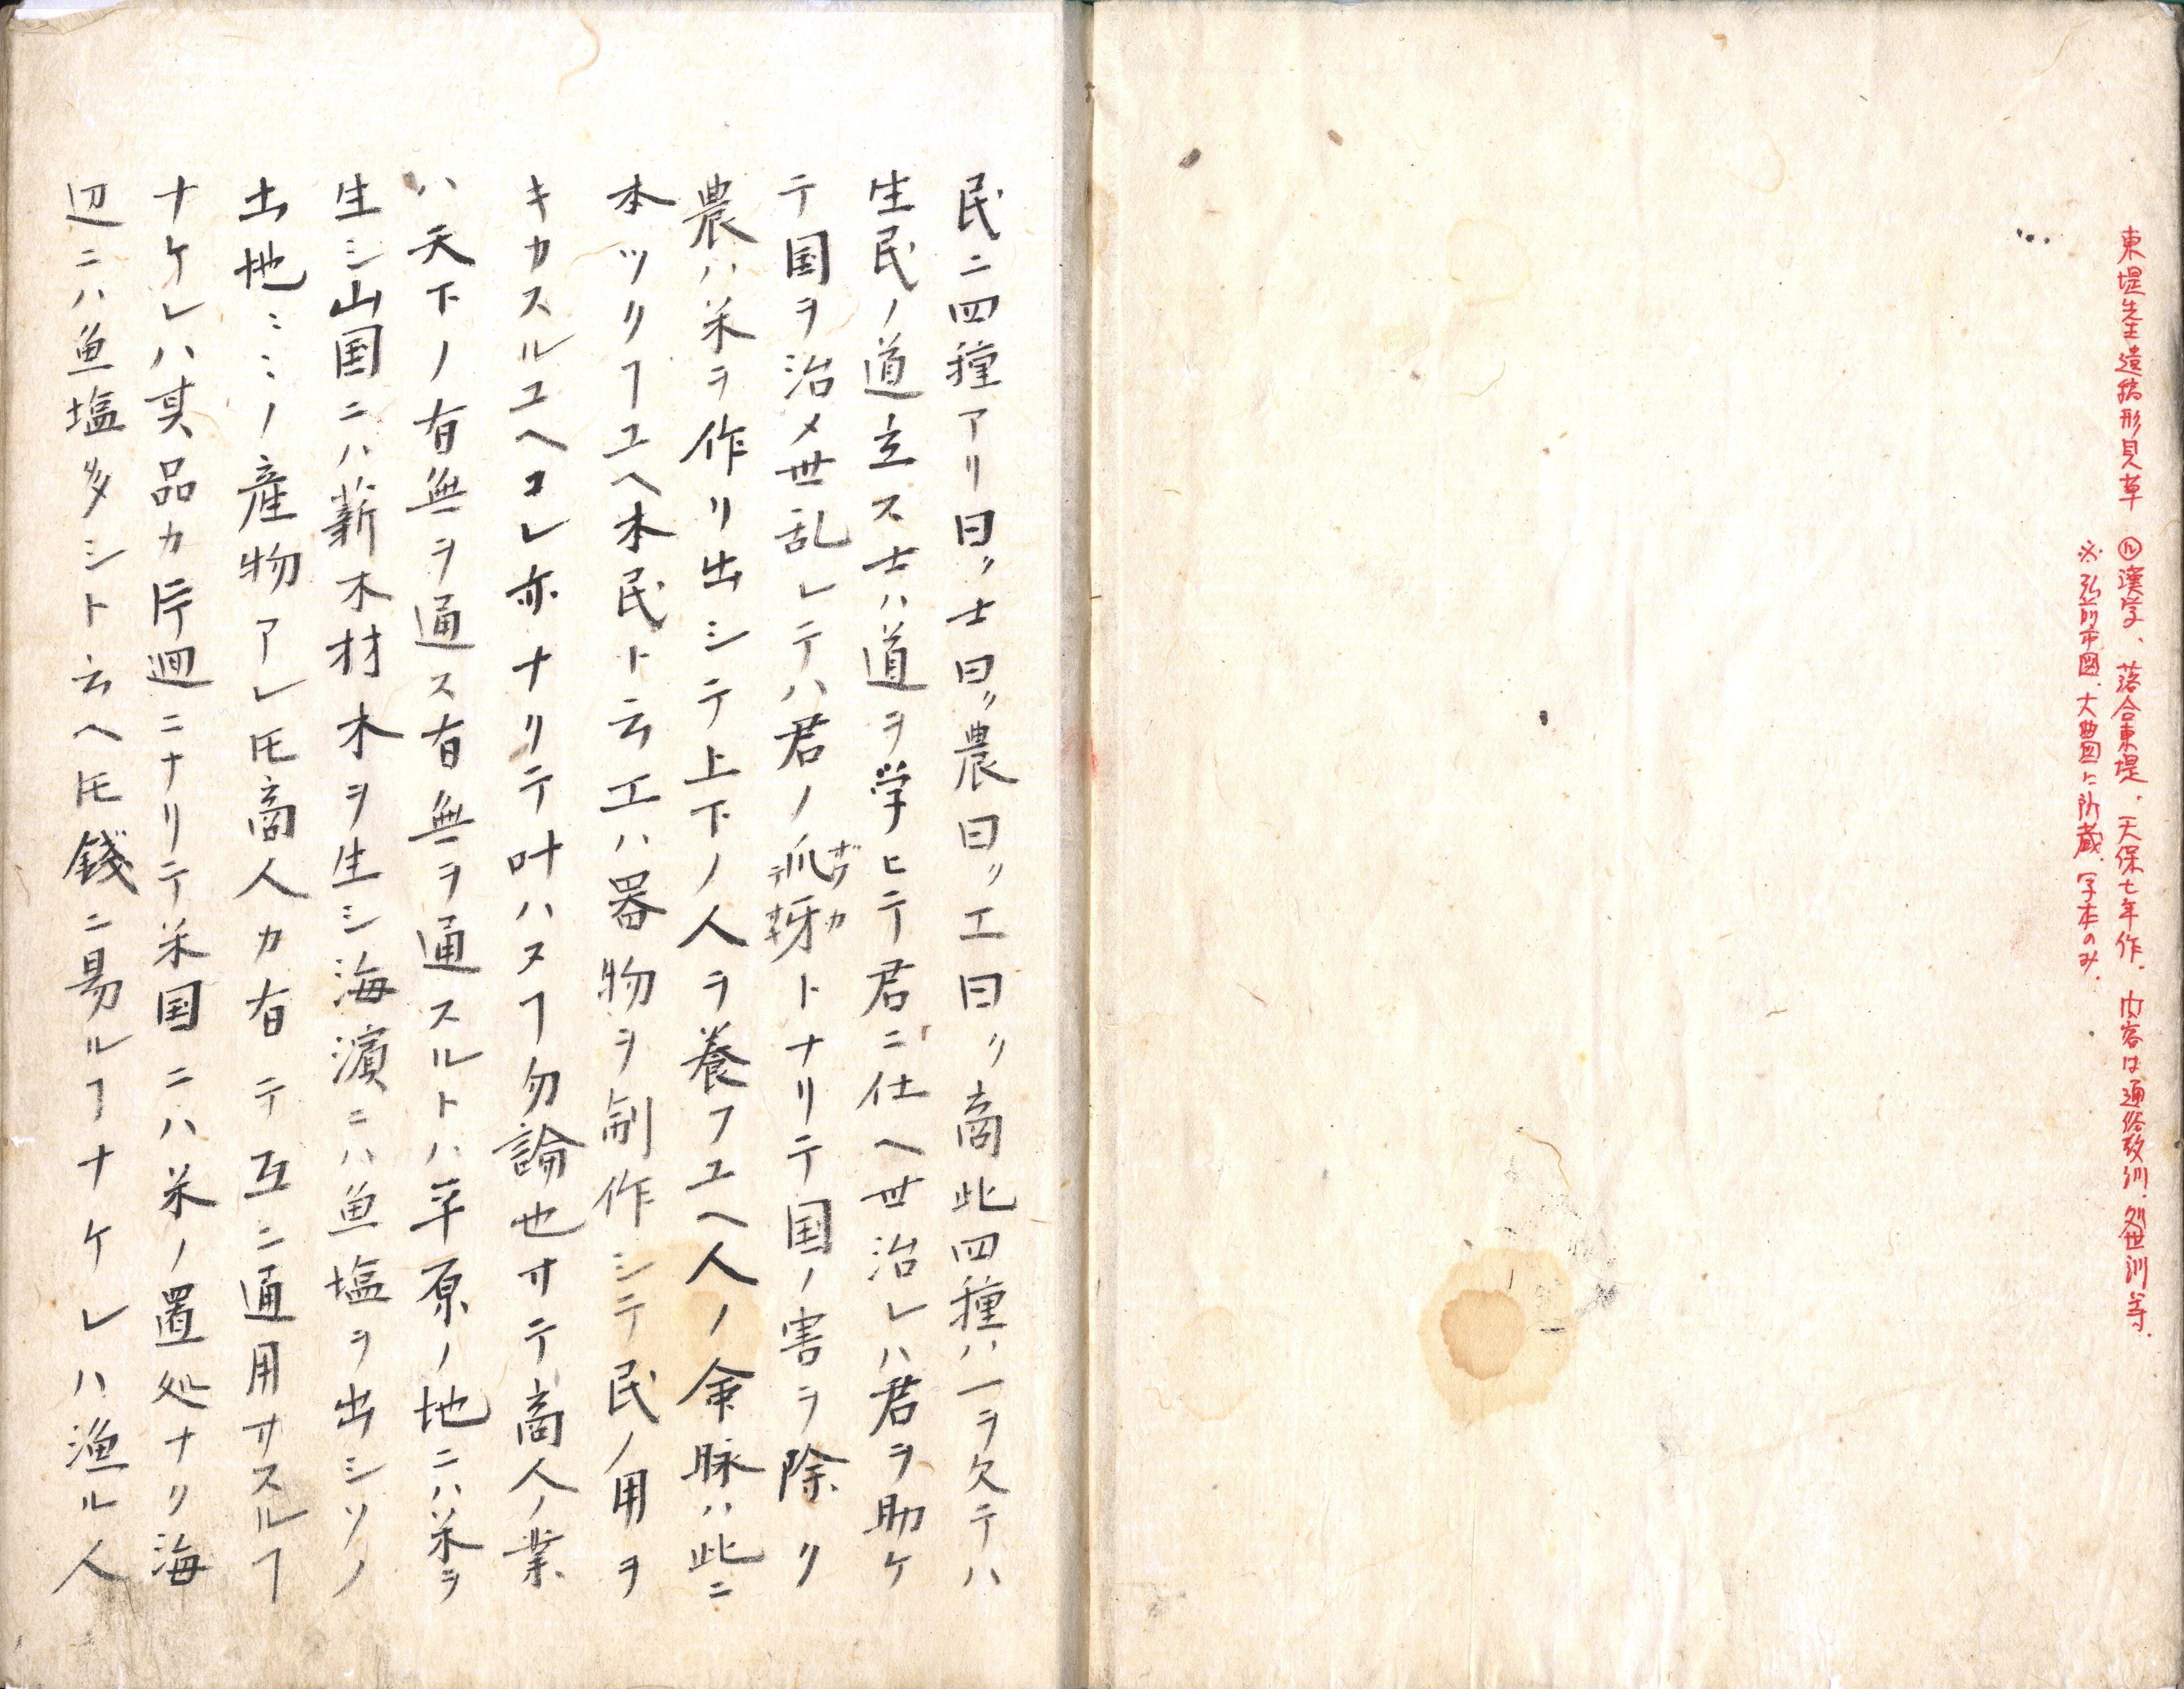 東堤先生遺稿形見草 ㊢漢学、落合東堤、天保七年作、内容は通俗教訓、処世訓等、
※弘前市図、大曲図に所蔵、写本のみ、
民ニ四種アリ曰ク士曰ク農曰ク工曰ク商此四種ハ一ヲ欠テハ
生民ノ道立ス士ハ道ヲ学ヒテ君ニ仕ヘ世治レハ君ヲ助ケ
テ国ヲ治メ世乱レテハ君ノ爪牙トナリテ国ノ害ヲ除ク
農ハ米ヲ作リ出シテ上下ノ人ヲ養フユヘ人ノ命脉ハ此ニ
本ツクヿユヘ本民ト云工ハ器物ヲ制作シテ民ノ用ヲ
キカスルユヘコレ亦ナリテ叶ハヌヿ勿論也サテ商人ノ業
ハ天下ノ有無ヲ通ス有無ヲ通スルトハ平原ノ地ニハ米ヲ
生シ山国ニハ薪木材木ヲ生シ海濵ニハ魚塩ヲ出シソノ
土地ミミノ産物アレ𪜈商人カ有テ互ニ通用サスルヿ
ナケレハ其品カ片廻ニナリテ米国ニハ米ノ置処ナク海
辺ニハ魚塩多シト云ヘ𪜈錢ニ易ルヿナケレハ漁ル人